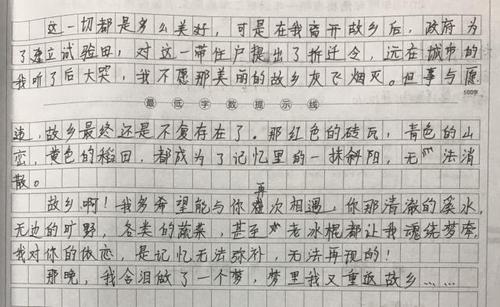 这一切都是多么美好，可是在我离开故乡后，政府为
了建立试验田，对这一带住户提出了拆迁令，远在城市的
我听了后大哭，我不愿那美丽的故乡灰飞烟灭。但事与愿
500字
最低字数提示线
违，故乡最终还是不复存在了。那红色的砖瓦，青色的山
峦，黄色的稻田，都成为了记忆里的一抹斜阳，无法消
散。
故乡啊！我多希望能与你再次相遇，你那清澈的溪水，
无边的旷野，各类的蔬菜，甚至老冰棍都让我魂绕梦牵，
我对你的依恋，是记忆无法弥补，无法再现的！
那晚，我含泪做了一个梦，梦里我又重返故乡……